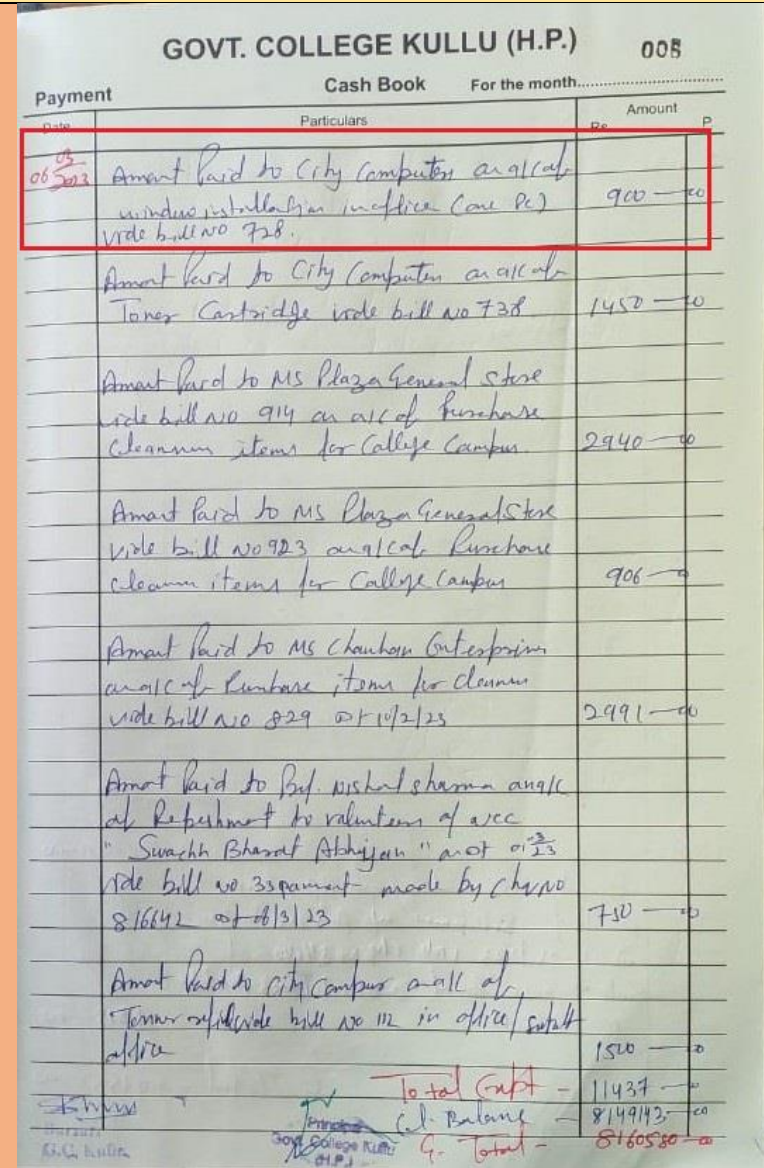 GOVT. COLLEGE KULLU (H.P.) 005
Payment Cash Book For the month
Date Particulars Amount
Rs. P.
06 03 2023 Amount Paid to City Computer on a/c of 
window installation in office (one Pc) 900 — 00
vide bill No 728.
Amount Paid to City Computer on a/c of
Toner Cartridge vide bill No 738 1450 — 00
Amount Paid to MS Plaza General Store
vide bill No 914 on a/c of Purchase
items for College Campus. 2940 — 00
Amount Paid to MS Plaza General Store
vide bill No 923 on a/c of Purchase
items for College Campus 906 —
Amount Paid to MS Chauhan Enterprises
on a/c of Purchase items for
vide bill No 829 dt 10/2/23 2991 — 00
Amount Paid to Prof. Nishal Sharma on a/c
of Refreshment to of NCC
" Swachh Bharat Abhiyan "
vide bill no 33 made by Ch No
816642 dt 6/3/23 750 — 00
Amount Paid to City on a/c of
vide bill No 112 in office /
office 1500 —
Total - 11437 — 00
Balance - 8149143 — 00
Principal
Govt. College Kullu
(H.P.)
G. Total - 8160580 — 00
G.C. Kullu